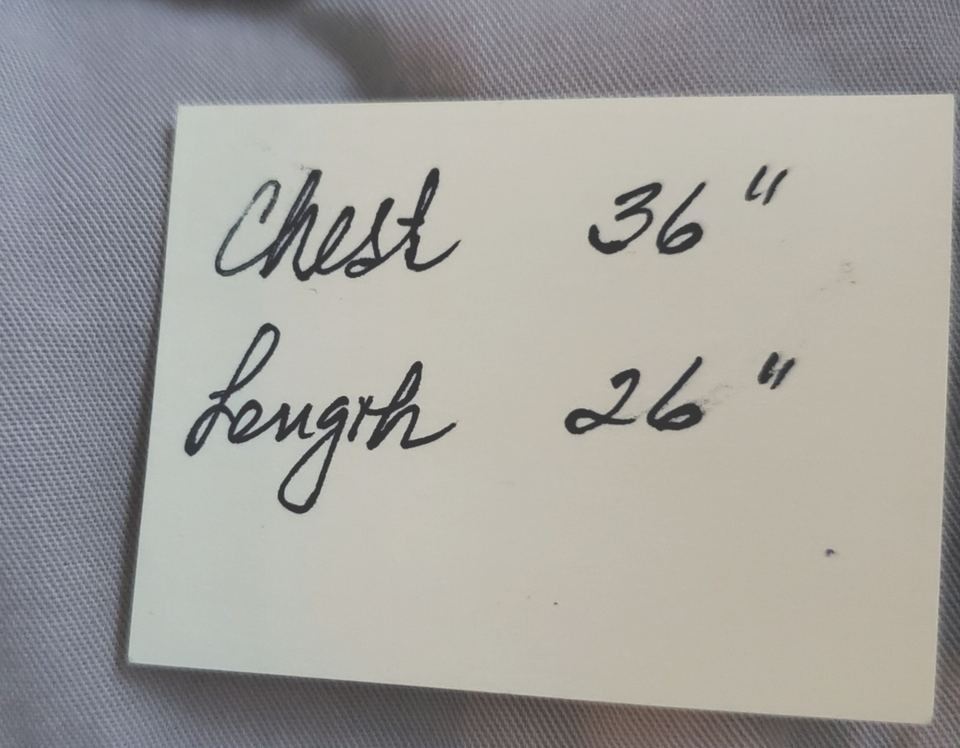 Chest 36"
Length 26"